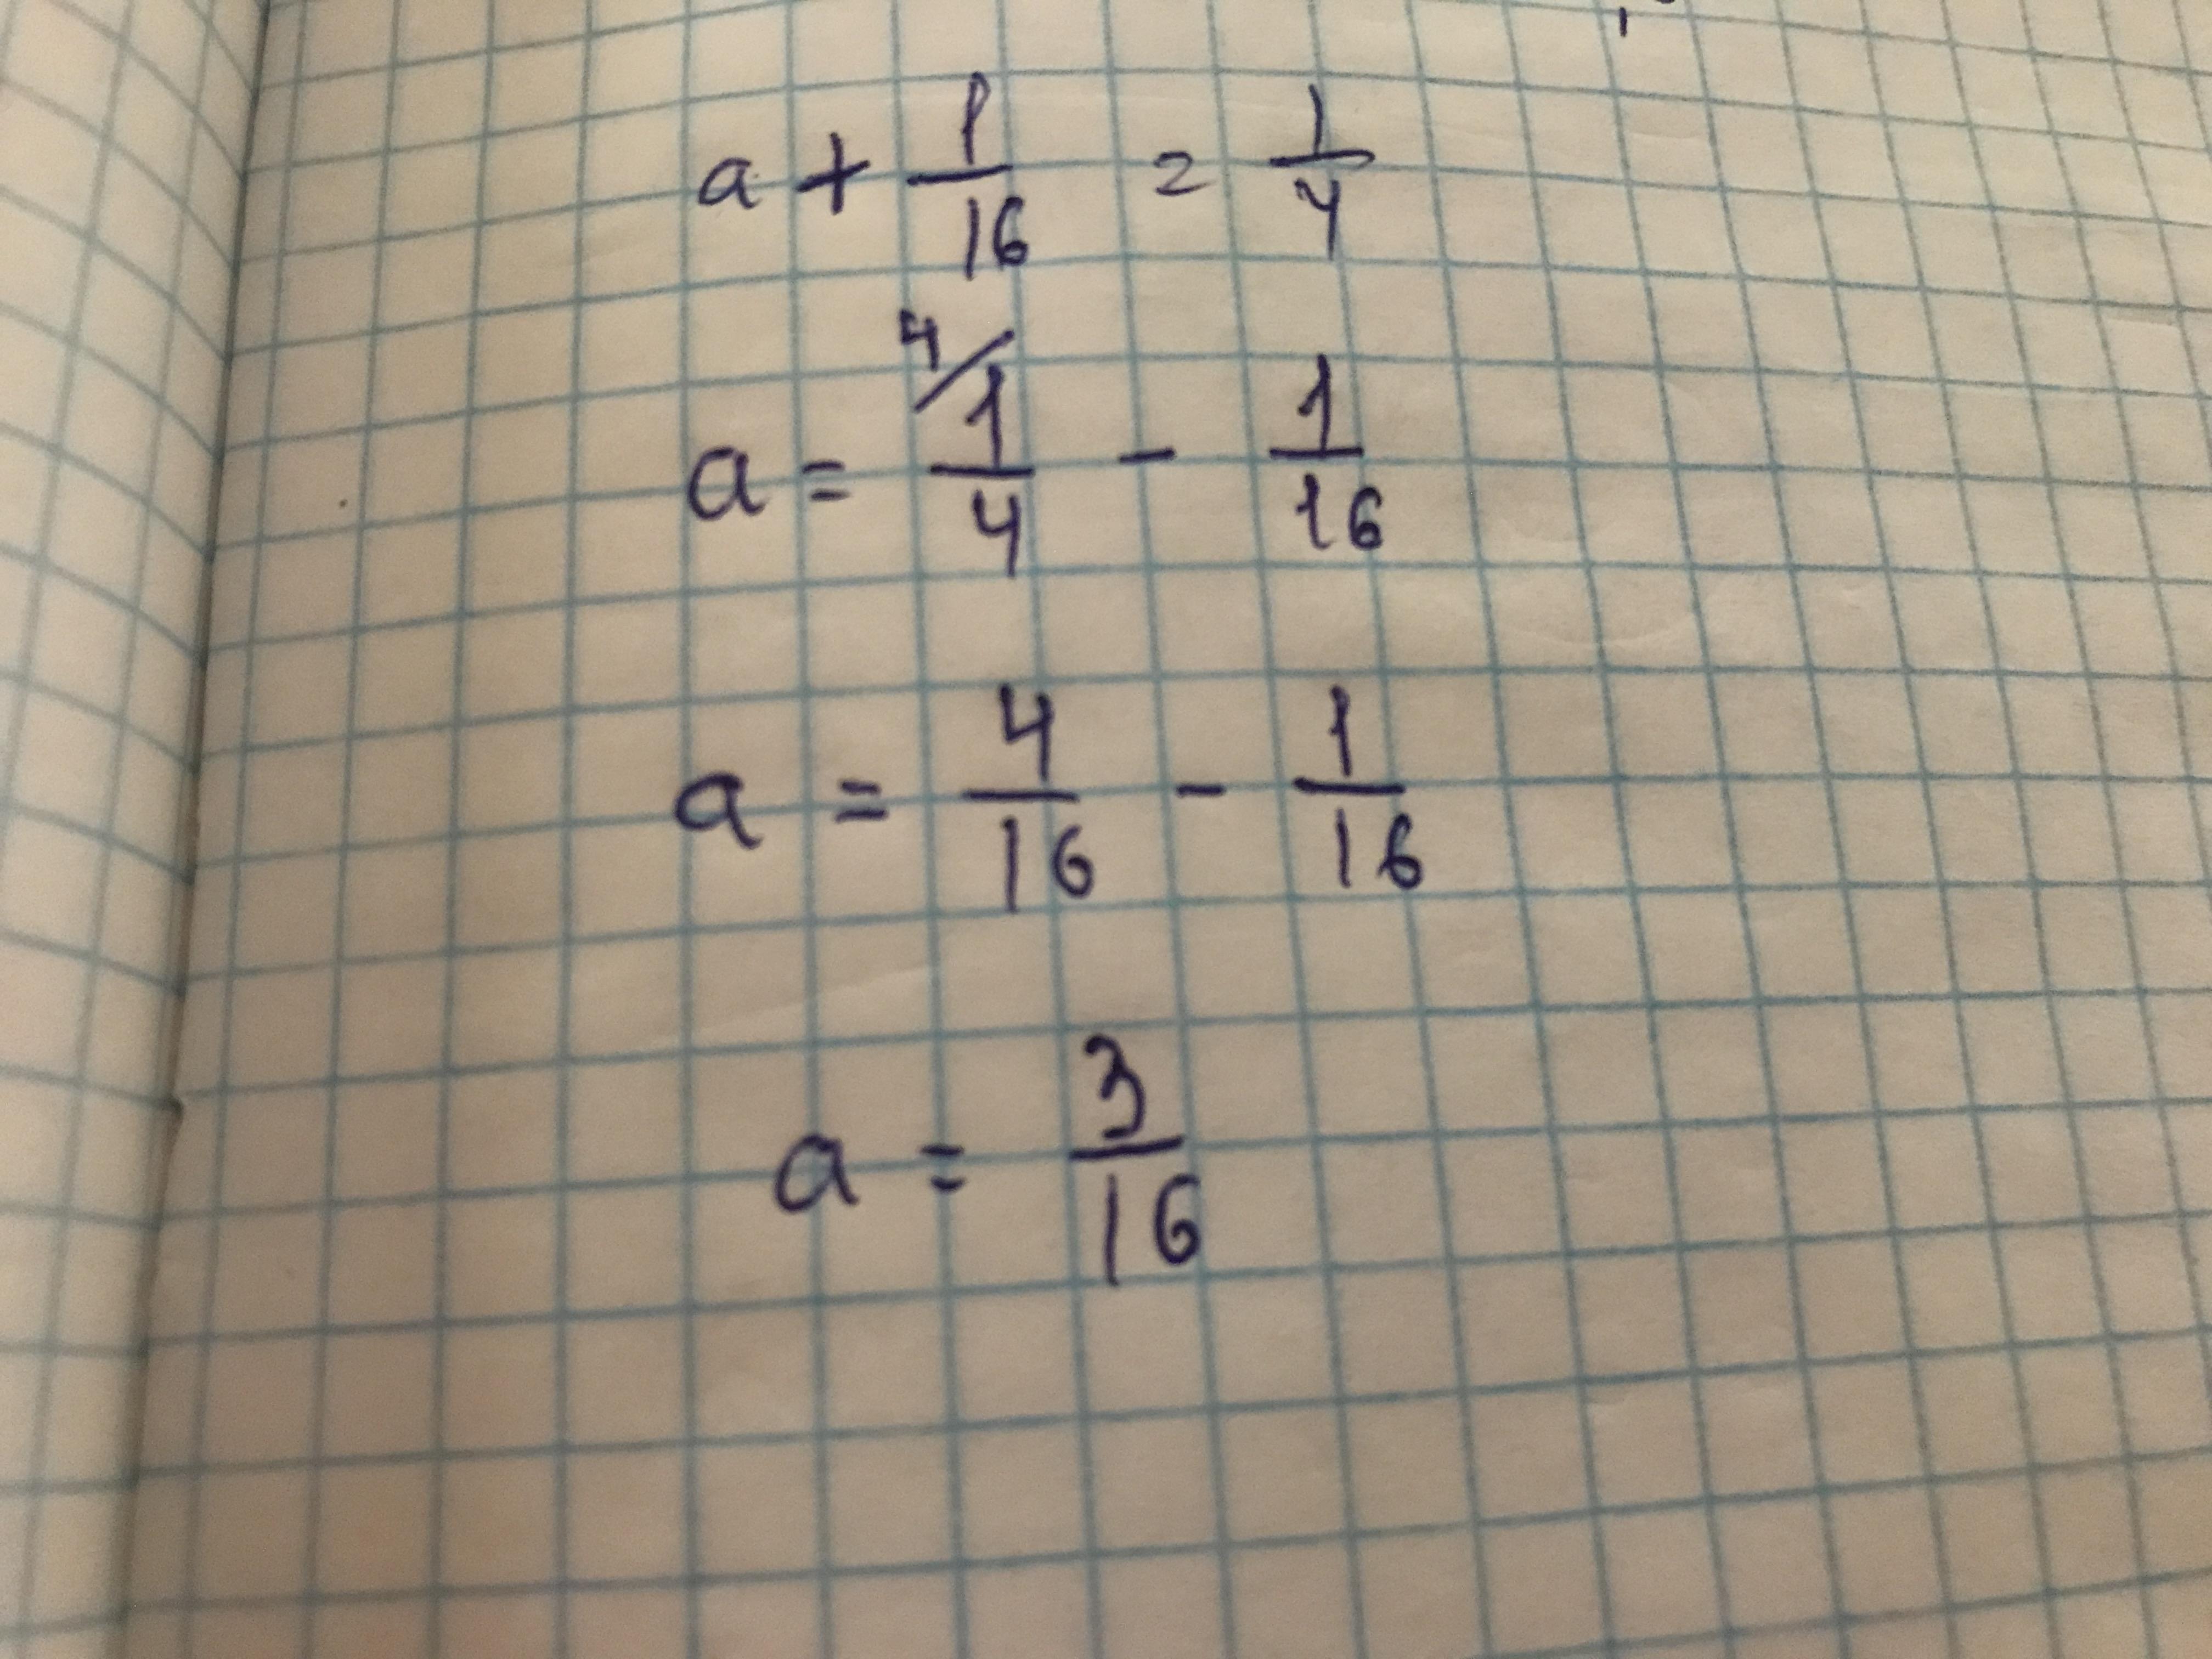 a + 1/16 = 1/4
a = 4/ 1/4 - 1/16
a = 4/16 - 1/16
a = 3/16